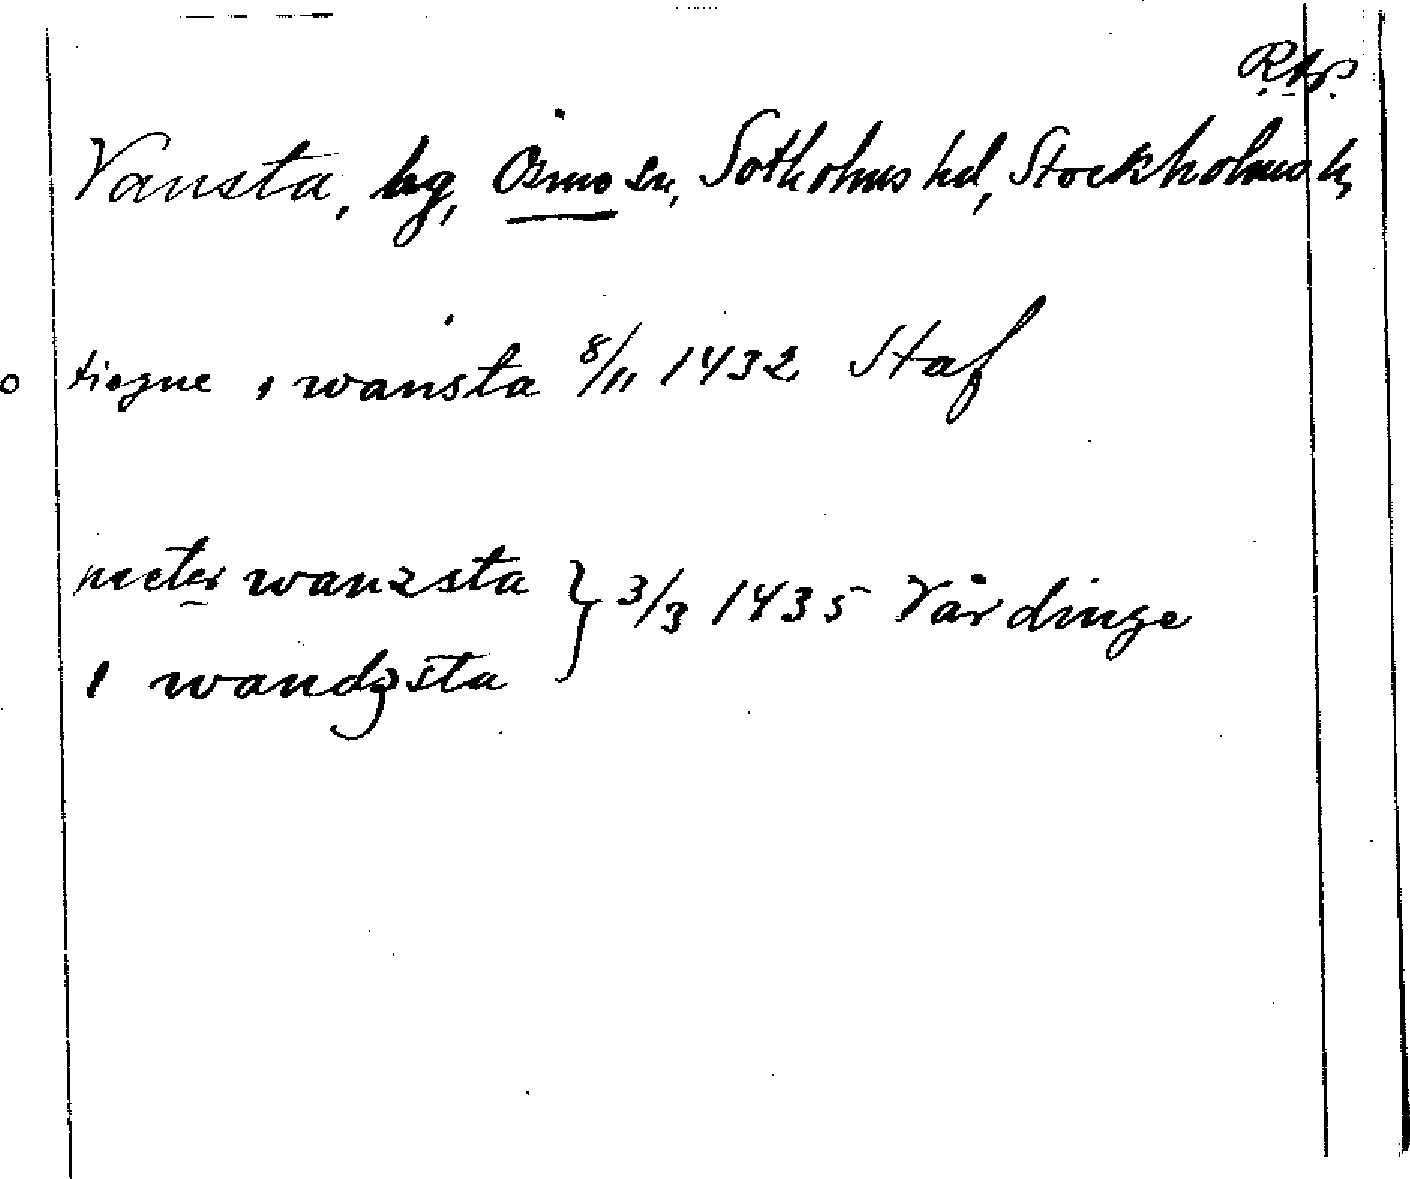 R.Ap.
Vansta, bg, Ösmo sn, Sotholms hd, Stockholms l,
tiogne i wansta 8/11 1432 Staf
pæter wanzsta } 3/3 1435 Vårdinge
i wandzsta